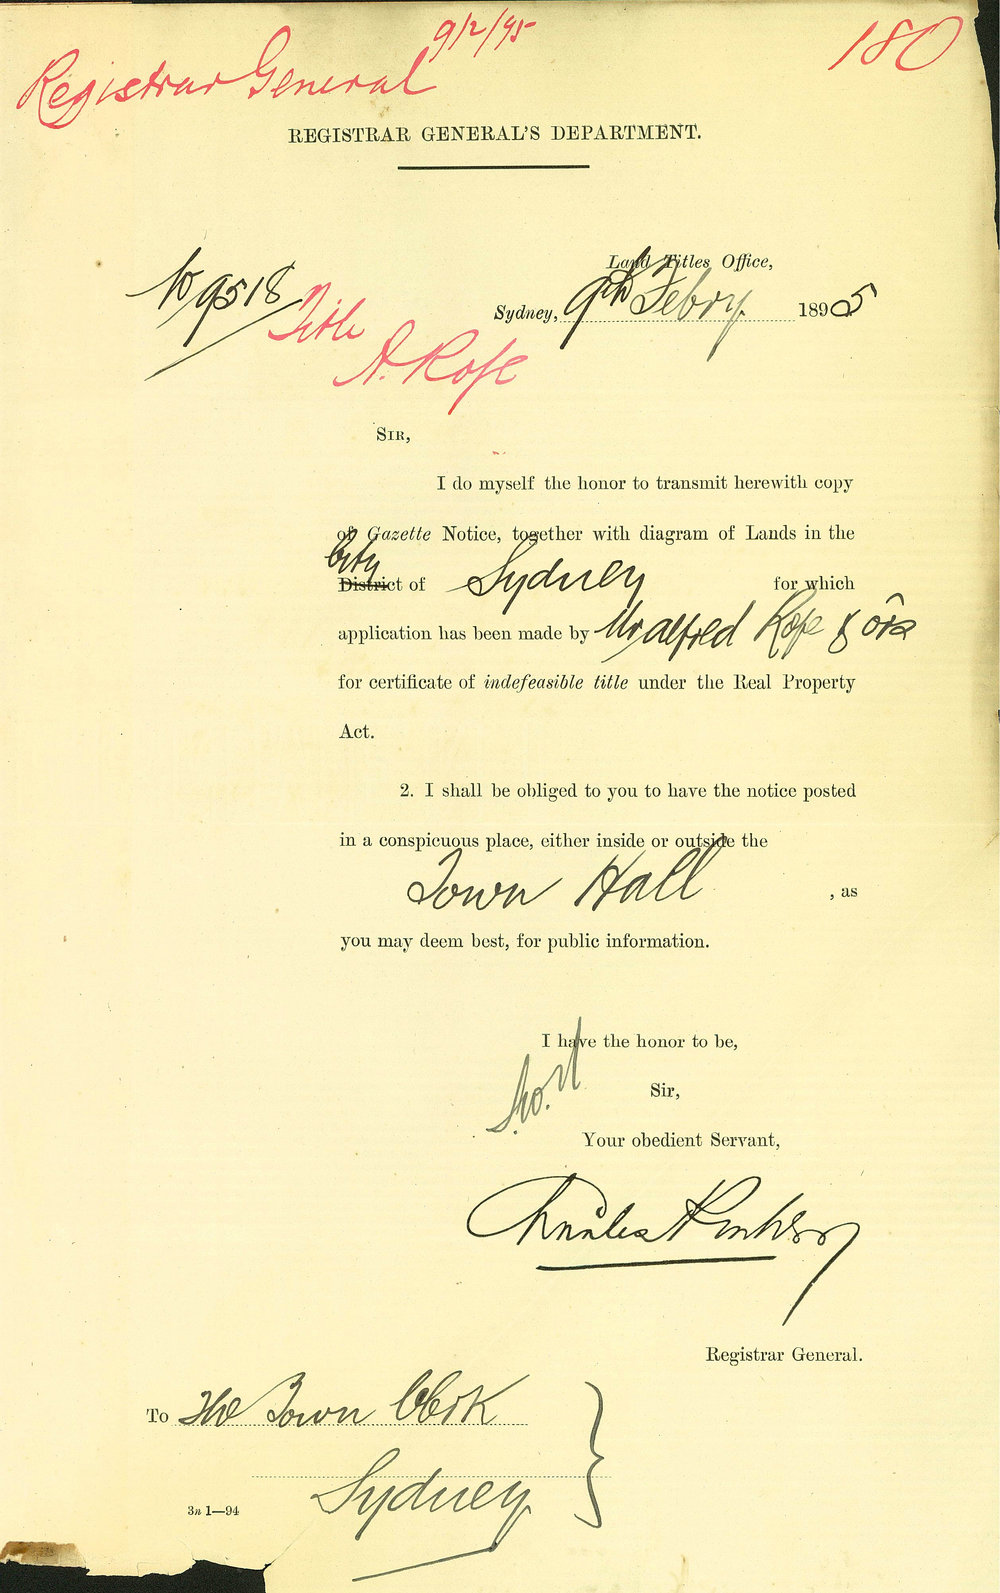 9/2/95
180
Registrar General
REGISTRAR GENERAL'S DEPARTMENT.
Land Titles Office,
No 9518
Sydney, 9th Febry. 1895
Title
A. Rofe
SIR,
I do myself the honor to transmit herewith copy
of Gazette Notice, together with diagram of Lands in the
City
District of Sydney for which
application has been made by Mr Alfred Rofe & ors
for certificate of indefeasible title under the Real Property
Act.
2. I shall be obliged to you to have the notice posted
in a conspicuous place, either inside or outside the
Town Hall , as
you may deem best, for public information.
I have the honor to be,
Sir,
Your obedient Servant,
Charles
Registrar General.
To The Town Clerk
Sydney
3n 1—94